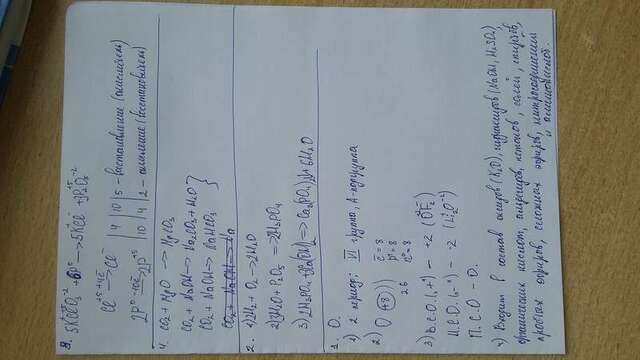 3. 5K⁺Cl⁺⁵O₃⁻² + 6P⁰ → 5K⁺Cl⁻ + 3P₂⁺⁵O₅⁻²
Cl⁺⁵ +6ē → Cl⁻ | 4 | 10 | 5 - востановление (окислитель)
2P⁰ -10ē → 2P⁺⁵ | 10 | 4 | 2 - окисление (восстановитель)
4. CO₂ + MgO → MgCO₃
CO₂ + NaOH → Na₂CO₃ + H₂O
CO₂ + NaOH → NaHCO₃
CO₂ + NaOH → Na
2. 1) 2H₂ + O₂ → 2H₂O
2) 3H₂O + P₂O₅ => 2H₃PO₄
3) 2H₃PO₄ + 3Ca(OH)₂ => Ca₃(PO₄)₂↓ + 6H₂O
1. O.
1) 2 период; VI группа, А-подгруппа
2) O (+8) )) ē = 8
p⁺ = 8
2 6 n⁰ = 8
3) В.С.О. („+") - +2 (OF₂)
Н.С.О. („-") - -2 (Li₂O⁻²)
П.С.О - O.
4) Входит в состав оксидов (K₂O), гидроксидов (NaOH, H₂SO₄),
органических кислот, альдегидов, кетонов, солей, спиртов,
простых эфиров, сложных эфиров, нитросоединений
и аминокислот.